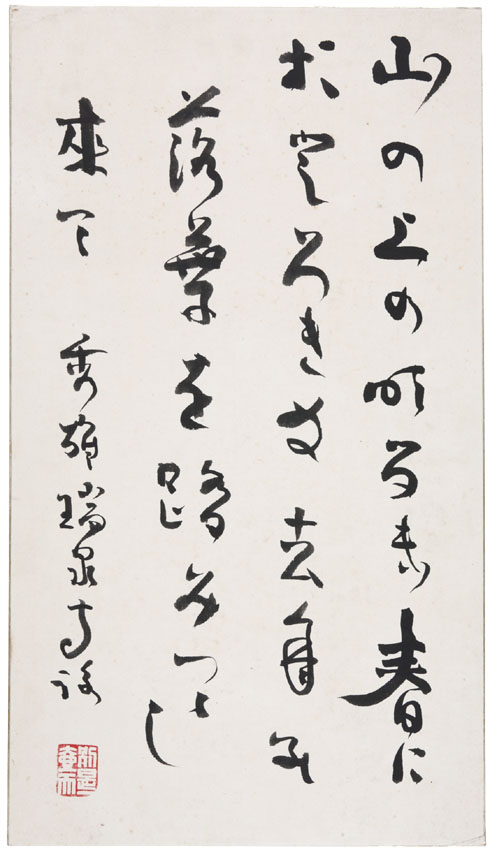 山の上の明るき春に
おとろきぬ去年の
落葉を踏みつつし
来て 秀雄 瑞泉寺詠